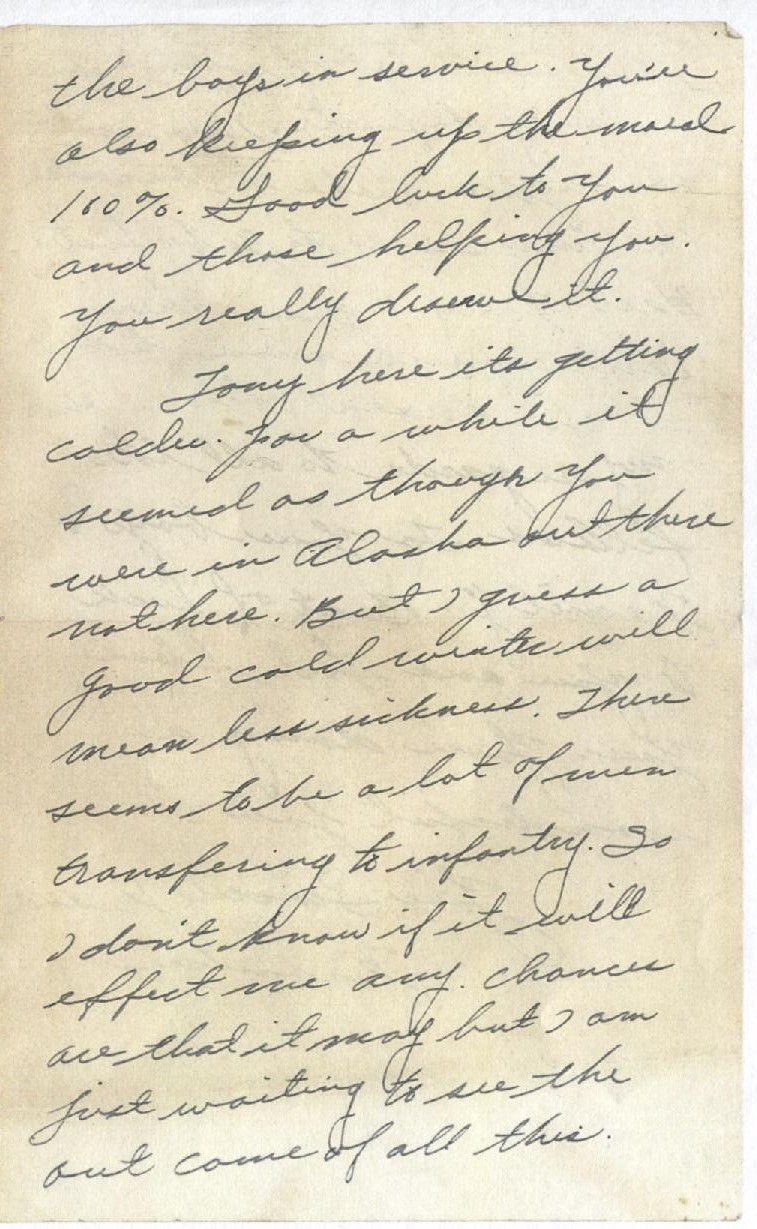 the boys in service. You're
also keeping up the moral
100%. Good luck to you
and those helping you.
You really deserve it.
Tony here its getting
colder. For a while it
seemed as though you
were in Alaska out there
not here. But I guess a
good cold winter will
mean less sickness. There
seems to be a lot of men
transfering to infantry. So
I don't know if it will
effect me any. Chances
are that it may but I am
just waiting to see the
out come of all this.